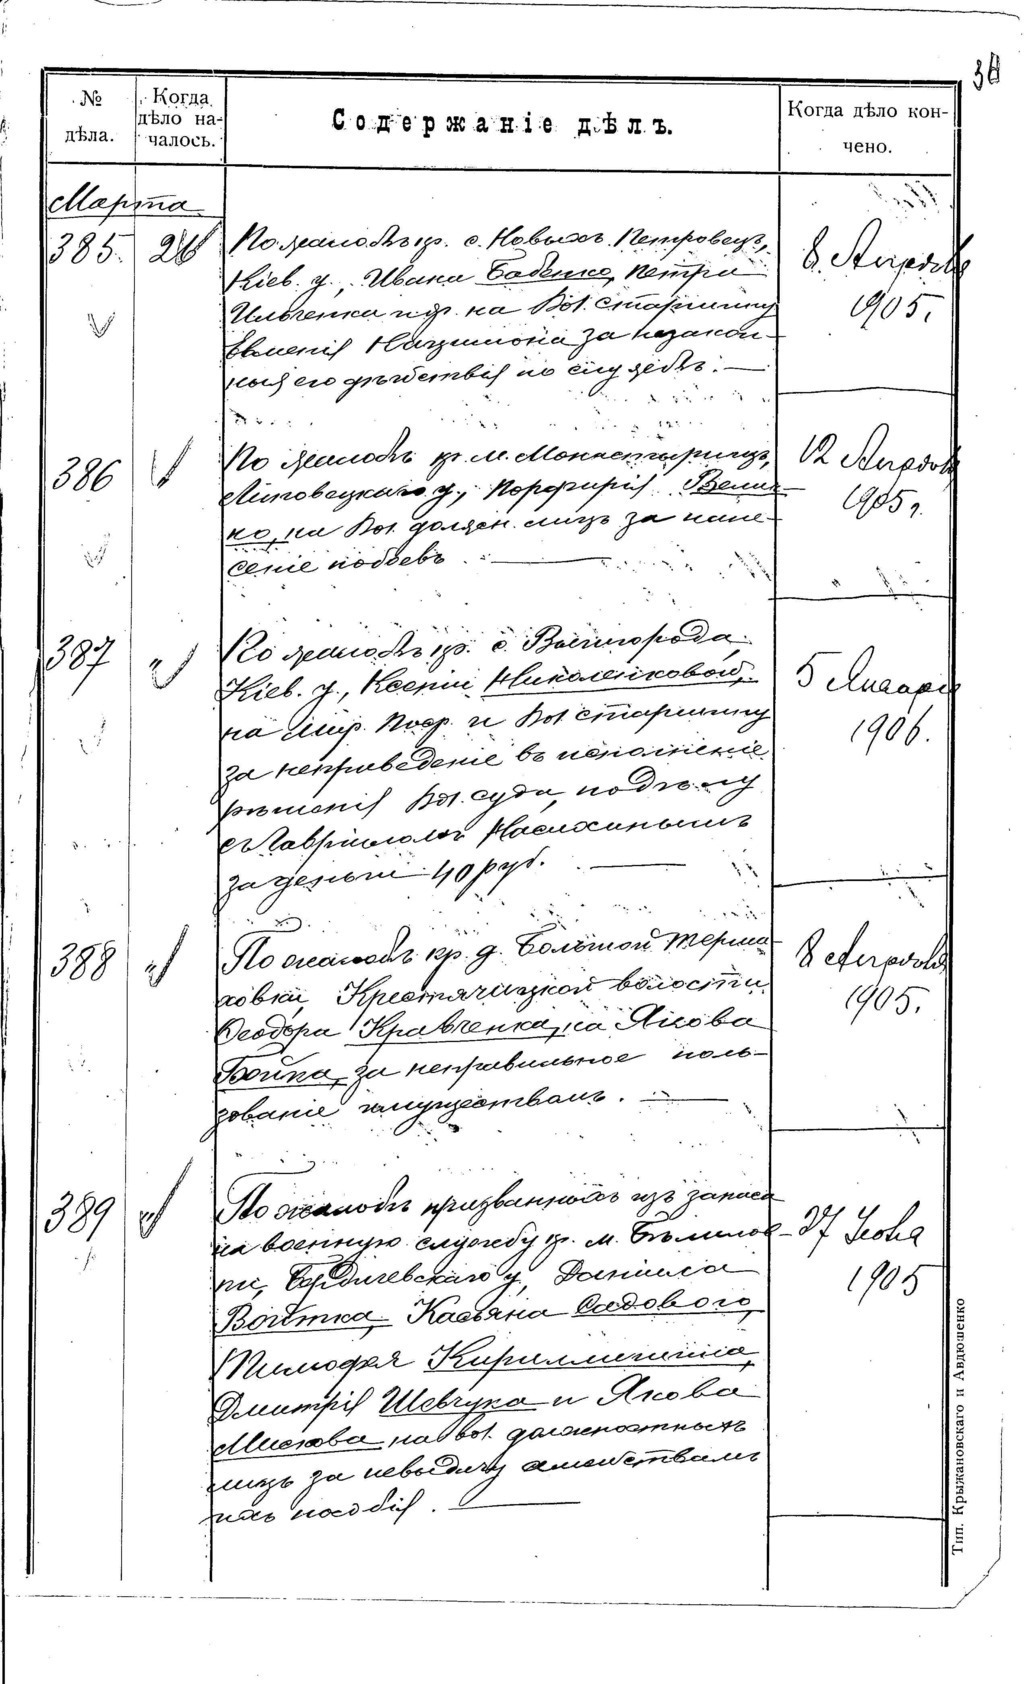 38
№ дѣла.
Когда дѣло началось.
Содержаніе дѣлъ.
Когда дѣло кончено.
Марта
385. 26
По жалобѣ кр. с. Новыхъ Петровецъ,
Кіев. у., Ивана Бабенко, Петра
Ильченка и др. на Вол. старшину
Евменія за незакон-
ныя его дѣйствія по службѣ. —
8 Апрѣля
1905.
386 "
По жалобѣ кр. м. Монастырищъ,
Липовецкаго у., Порфирія Велич-
ко, на Вол. должн. лицъ за нане-
сеніе побоевъ. —
12 Апрѣля
1905 г.
387 "
По жалобѣ кр. с. Вышгорода,
Кіев. у., Ксеніи Николенковой,
на Мир. Поср. и Вол. старшину
за неприведеніе въ исполненіе
рѣшенія Вол. суда, по дѣлу
съ Гавріиломъ
за деньги 40 руб. —
5 Января
1906.
388 "
По жалобѣ кр. д. Большой Терма-
ховки, волости
Ѳеодора Кравченка, на Якова
Бойка, за неправильное поль-
зованіе имуществомъ. —
8 Апрѣля
1905.
389 "
По жалобѣ призванныхъ изъ запаса
на военную службу кр. м. Бѣлилов-
ки, Бердичевскаго у., Даніила
Войтка, Касьяна Садового,
Тимофея
Дмитрія Шевчука и Якова
на вол. должностныхъ
лицъ за невыдачу семействамъ
ихъ пособія. —
27 Іюня
1905
Тип. Крыжановскаго и Авдюшенко